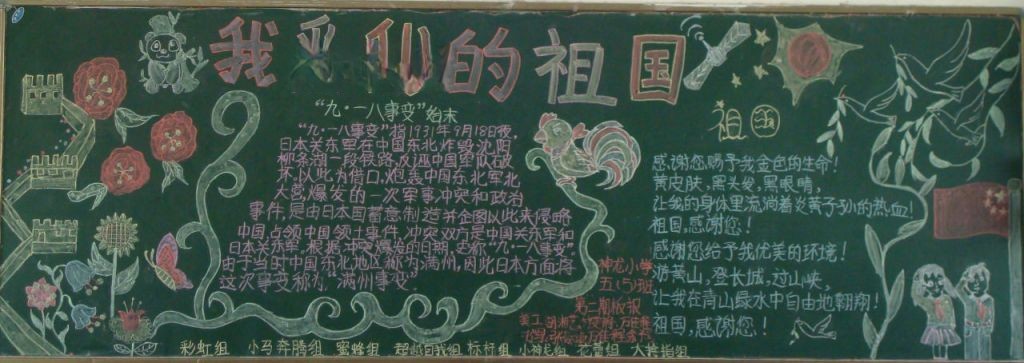 我爱我们的祖国
"九·一八事变"始末
"九·一八事变"指1931年9月18日夜,
日本关东军在中国东北炸毁沈阳
柳条湖一段铁路,反诬中国军队破
坏,以此为借口,炮轰中国东北军北
大营爆发的一次军事冲突和政治
事件,是由日本国蓄意制造并企图以此来侵略
中国占领中国领土事件,冲突双方是中国关东军和
日本关东军,根据冲突爆发的日期,史称"九·一八事变"。
由于当时中国东北地区称为满州,因此日本方面将
这次事变称为"满州事变"。
祖国
感谢您赐予我金色的生命!
黄皮肤,黑头发,黑眼睛,
让我的身体里流淌着炎黄子孙的热血!
祖国,感谢您!
感谢您给予我优美的环境!
游黄山,登长城,过山峡,
让我在青山绿水中自由地翱翔!
祖国,感谢您!
神龙小学
五(5)班
第二期板报
美工:
彩虹组 小马奔腾组 蜜蜂组 超越自我组 标杆组 花蕾组 大拇指组